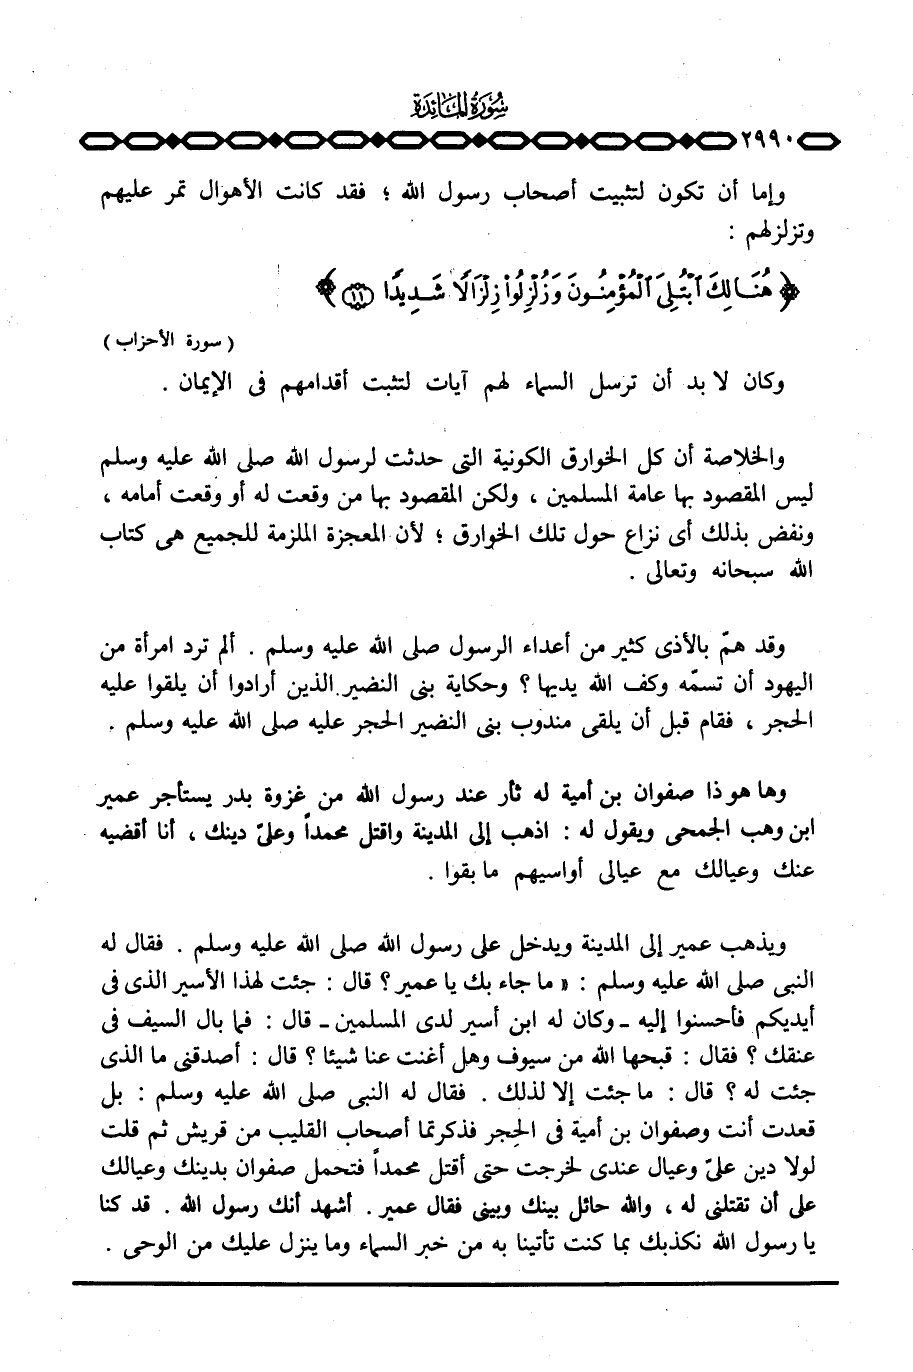 سورة المائدة
٢٩٩٠
وإما أن تكون لتثبيت أصحاب رسول الله ؛ فقد كانت الأهوال تمر عليهم
وتزلزلهم :
﴿ هُنَالِكَ ٱبْتُلِىَ ٱلْمُؤْمِنُونَ وَزُلْزِلُوا۟ زِلْزَالًا شَدِيدًا ⑪ ﴾
( سورة الأحزاب )
وكان لا بد أن ترسل السماء لهم آيات لتثبت أقدامهم فى الإيمان .
والخلاصة أن كل الخوارق الكونية التى حدثت لرسول الله صلى الله عليه وسلم
ليس المقصود بها عامة المسلمين ، ولكن المقصود بها من وقعت له أو وقعت أمامه ،
ونفض بذلك أى نزاع حول تلك الخوارق ؛ لأن المعجزة الملزمة للجميع هى كتاب
الله سبحانه وتعالى .
وقد همّ بالأذى كثير من أعداء الرسول صلى الله عليه وسلم . ألم ترد امرأة من
اليهود أن تسمّه وكف الله يديها ؟ وحكاية بنى النضير الذين أرادوا أن يلقوا عليه
الحجر ، فقام قبل أن يلقى مندوب بنى النضير الحجر عليه صلى الله عليه وسلم .
وها هو ذا صفوان بن أمية له ثأر عند رسول الله من غزوة بدر يستأجر عمير
ابن وهب الجمحى ويقول له : اذهب إلى المدينة واقتل محمداً وعلىّ دينك ، أنا أقضيه
عنك وعيالك مع عيالى أواسيهم ما بقوا .
ويذهب عمير إلى المدينة ويدخل على رسول الله صلى الله عليه وسلم . فقال له
النبى صلى الله عليه وسلم : « ما جاء بك يا عمير ؟ قال : جئت لهذا الأسير الذى فى
أيديكم فأحسنوا إليه ـ وكان له ابن أسير لدى المسلمين ـ قال : فما بال السيف فى
عنقك ؟ فقال : قبحها الله من سيوف وهل أغنت عنا شيئا ؟ قال : أصدقنى ما الذى
جئت له ؟ قال : ما جئت إلا لذلك . فقال له النبى صلى الله عليه وسلم : بل
قعدت أنت وصفوان بن أمية فى الحِجر فذكرتما أصحاب القليب من قريش ثم قلت
لولا دين علىّ وعيال عندى لخرجت حتى أقتل محمداً فتحمل صفوان بدينك وعيالك
على أن تقتلنى له ، والله حائل بينك وبينى فقال عمير . أشهد أنك رسول الله . قد كنا
يا رسول الله نكذبك بما كنت تأتينا به من خبر السماء وما ينزل عليك من الوحى .